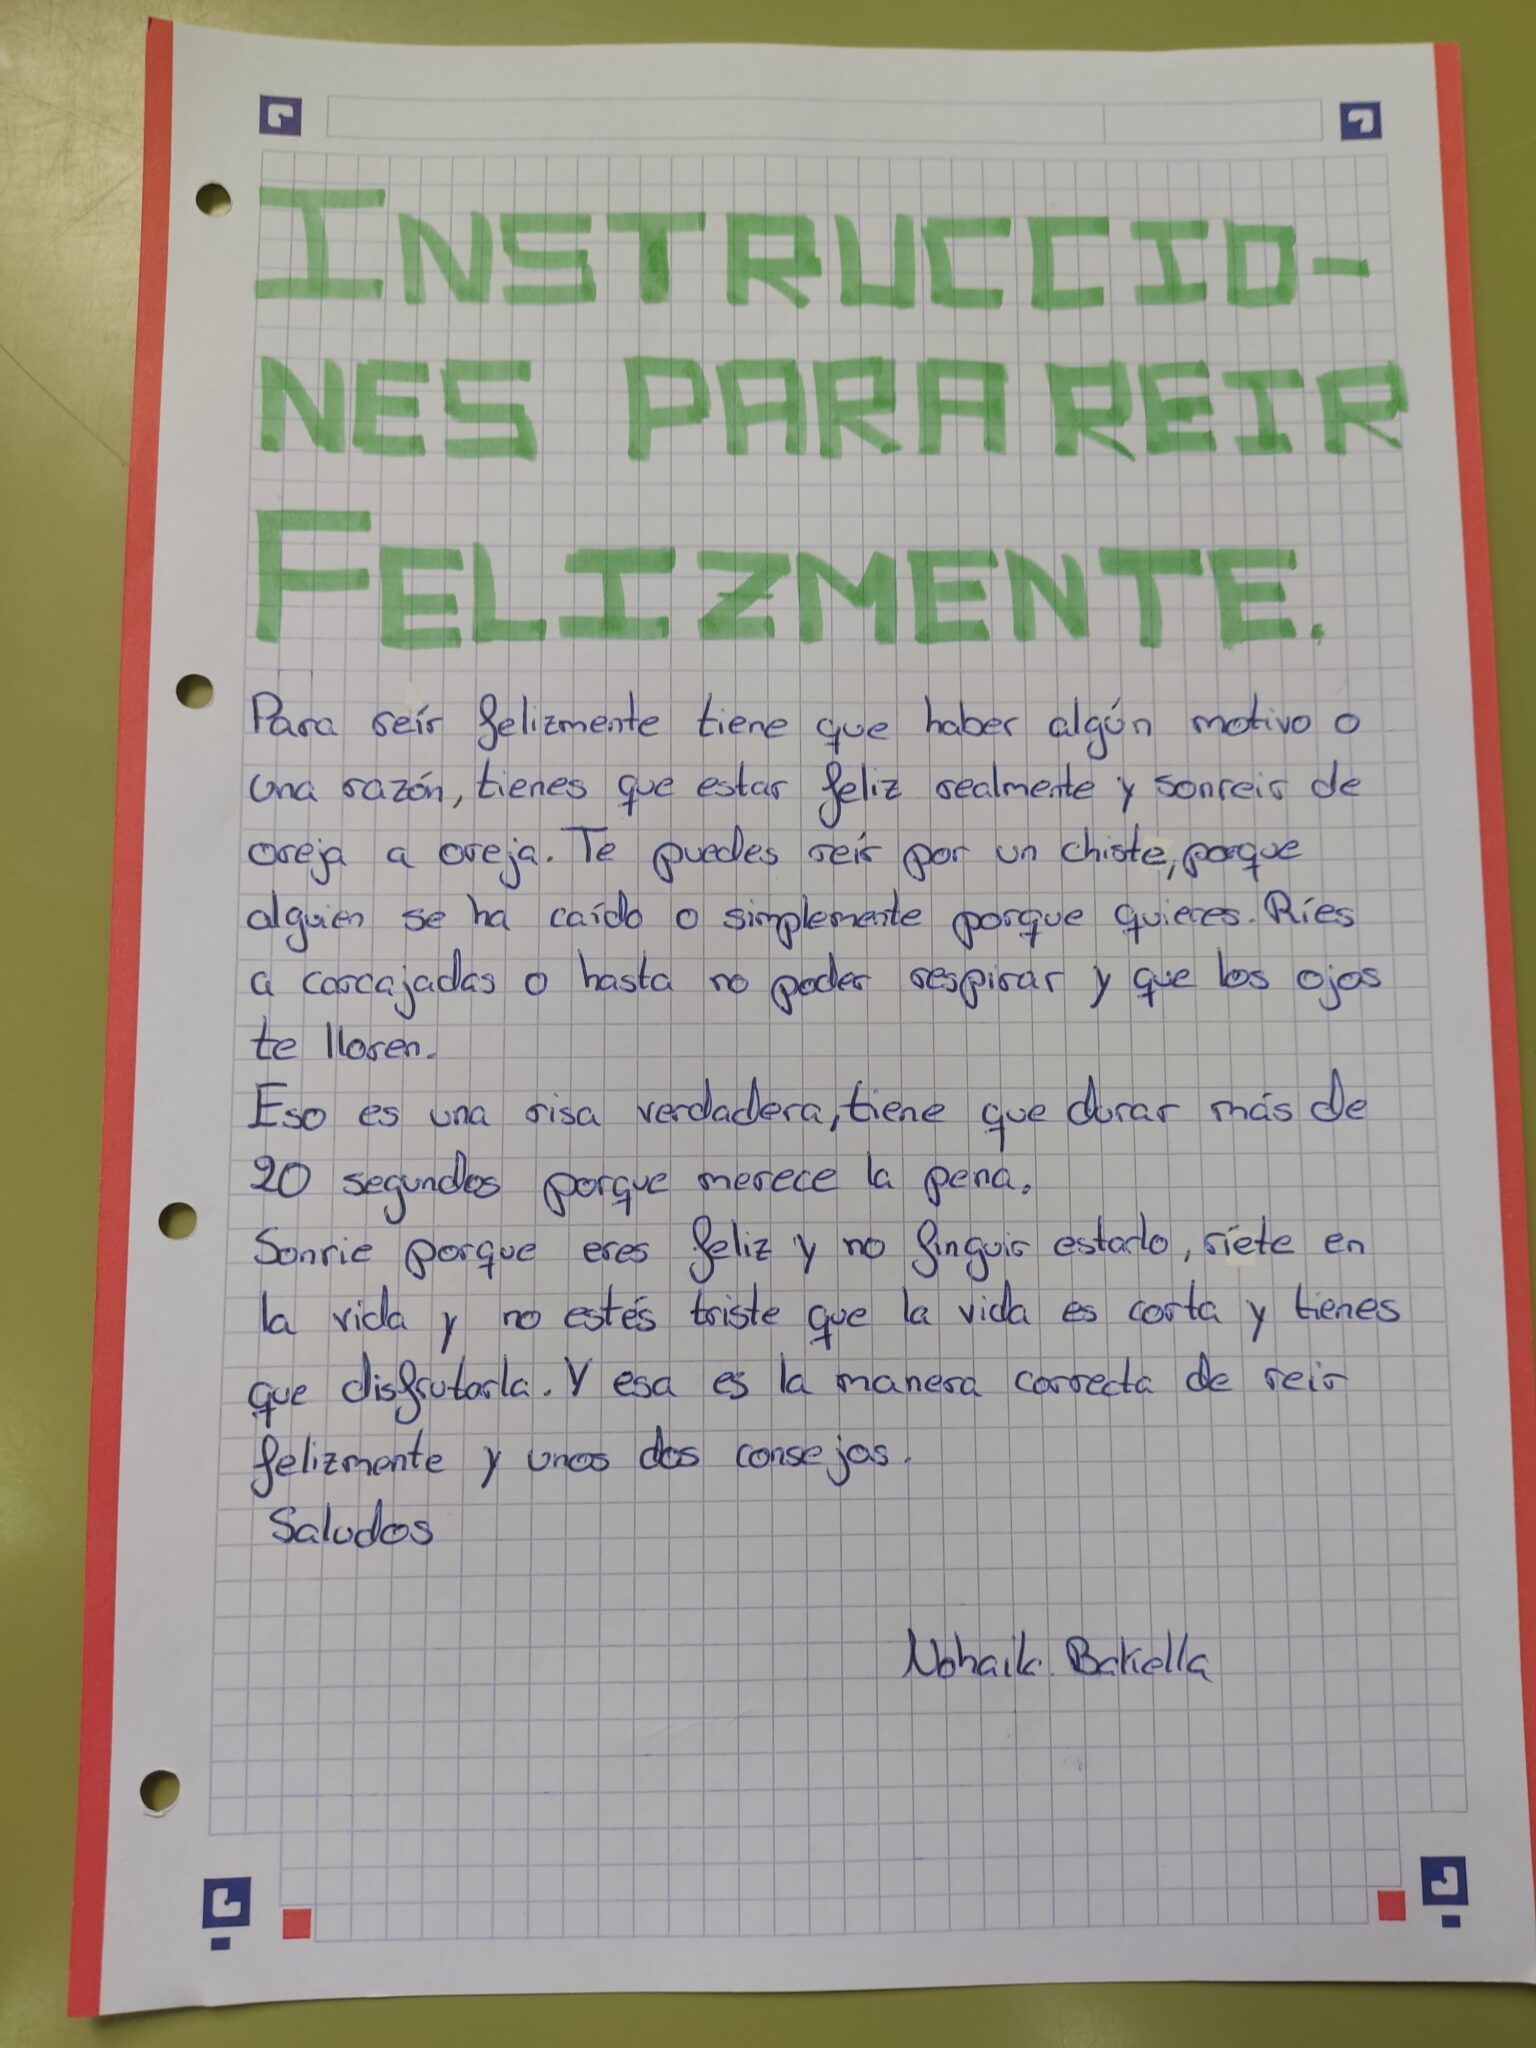 INSTRUCCIO-
NES PARA REIR
FELIZMENTE.
Para reír felizmente tiene que haber algún motivo o
una razón, tienes que estar feliz realmente y sonreir de
oreja a oreja. Te puedes reír por un chiste, porque
alguien se ha caído o simplemente porque quieres. Ríes
a carcajadas o hasta no poder respirar y que los ojos
te lloren.
Eso es una risa verdadera, tiene que durar más de
20 segundos porque merece la pena.
Sonrie porque eres feliz y no finguir estarlo, ríete en
la vida y no estés triste que la vida es corta y tienes
que disfrutarla. Y esa es la manera correcta de reir
felizmente y unos dos consejos.
Saludos
Nohaila Bakella